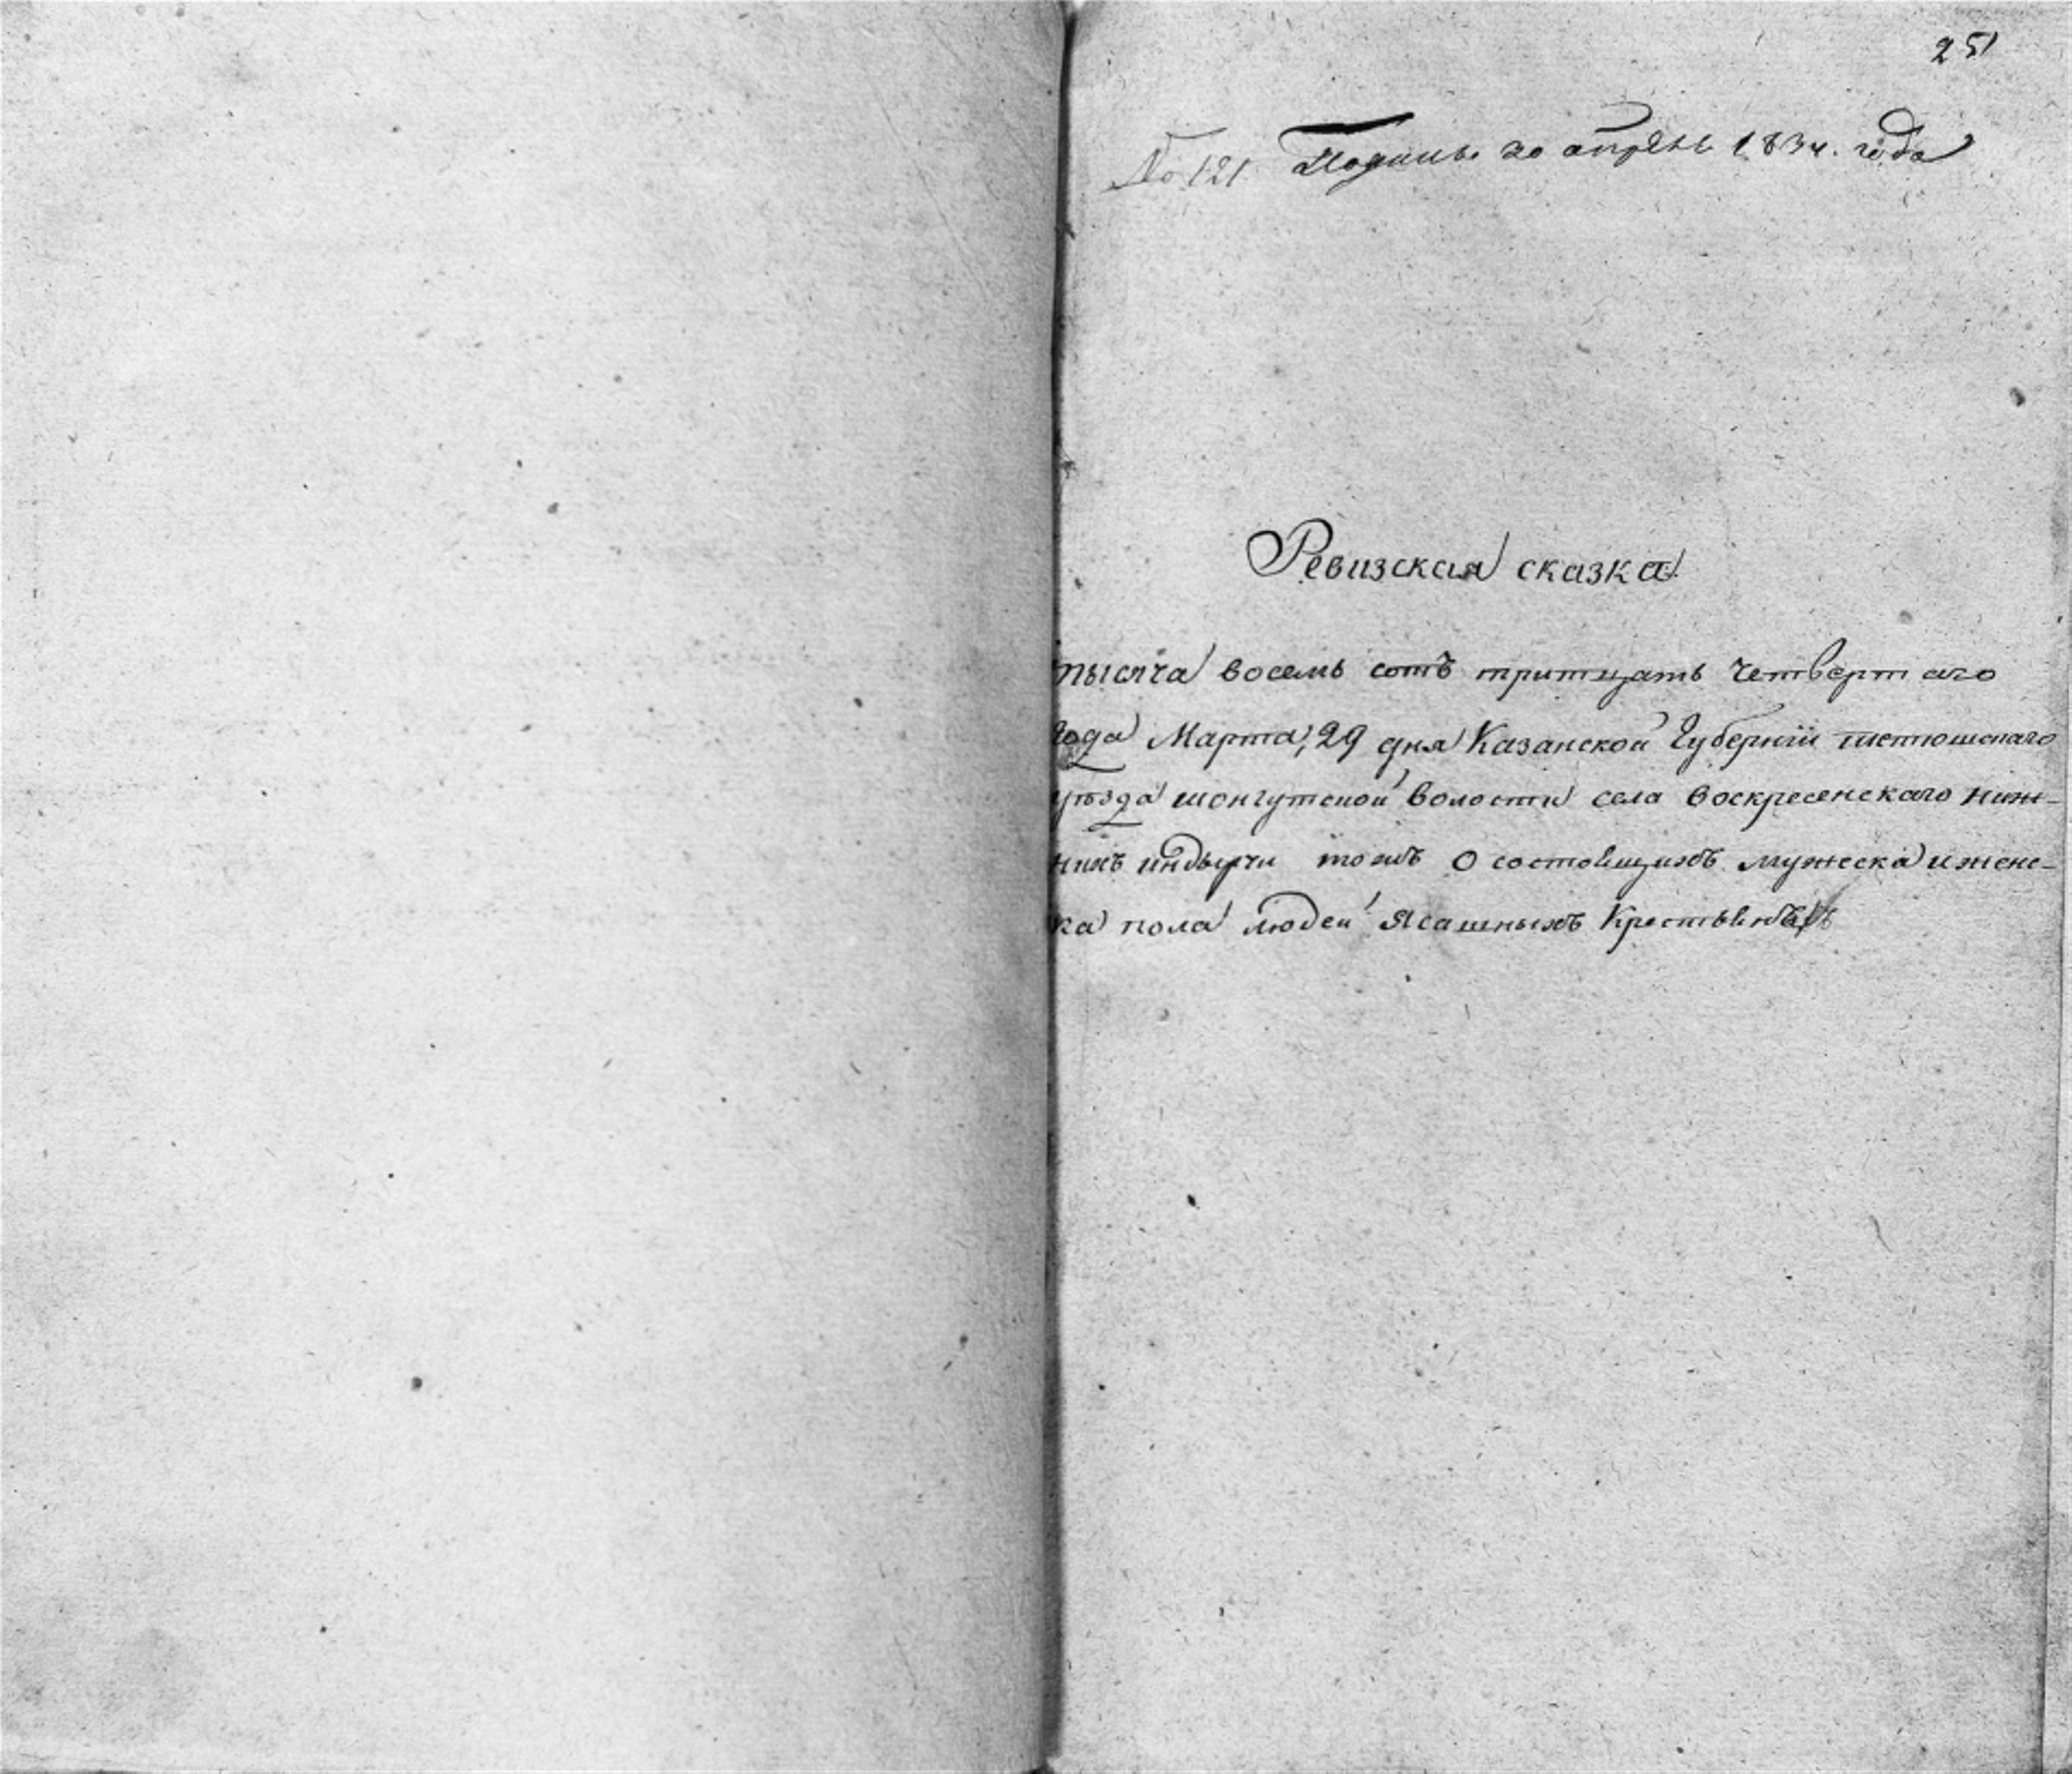 251
No 121. 20 апреля 1834. года
Ревизская сказка
тысяча восемь сотъ тритцать четвертаго
года Марта, 29 дня Казанской Губернїи тетюшскаго
уѣзда шонгутской волости села воскресенскаго ниж-
нихъ индырчи тожъ о состоящихъ мужеска и женс-
ка пола людей Ясашныхъ